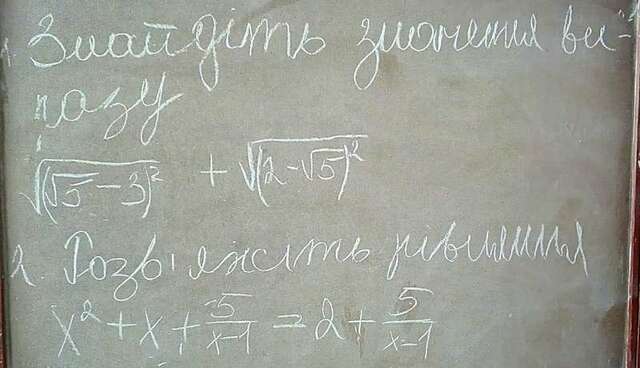 1. Знайдіть значення ви-
разу
√(√5 − 3)² + √(2 − √5)²
2. Розв'яжіть рівняння
x² + x + 5/(x−1) = 2 + 5/(x−1)